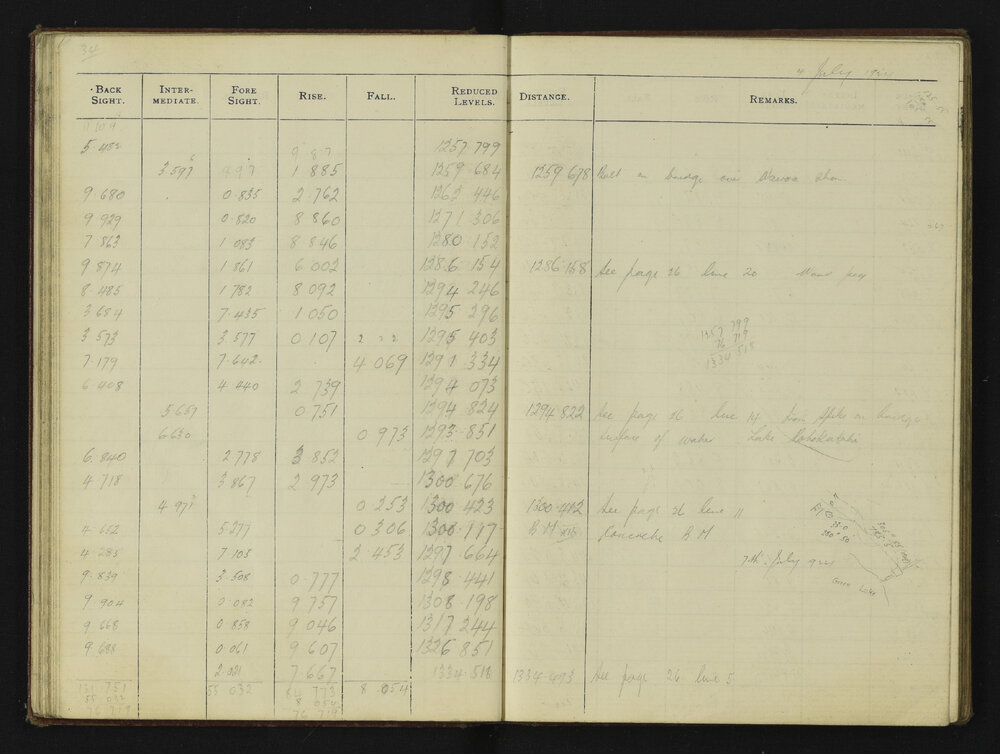 34
4 July 1921
BACK SIGHT. INTER-MEDIATE. FORE SIGHT. RISE. FALL. REDUCED LEVELS. DISTANCE. REMARKS.
5 482 1257 799
3 597 1 885 1259 684 1259 678 on bridge over
9 680 0 835 2 762 1262 446
9 929 0 820 8 860 1271 306
7 863 1 083 8 846 1280 152
9 874 1 861 6 002 1286 154 1286 158 See page 26 line 20
8 485 1 782 8 092 1294 246
3 684 7 435 1 050 1295 296
3 573 3 577 0 107 1295 403
7 179 7 642 4 069 1291 334
6 408 4 440 2 739 1294 073
5 657 0 751 1294 824 1294 822 See page 26 line 14 Iron Spike on
6 630 0 973 1293 851 surface of water Lake
6 840 2 778 3 852 1297 703
4 718 3 867 2 973 1300 676
4 971 0 253 1300 423 1300 412 See page 26 line 11
4 652 5 277 0 306 1300 117 B M Concrete B M
4 285 7 105 2 453 1297 664 7th July 1921
9 839 3 508 0 777 1298 441
9 904 0 082 9 757 1308 198
9 668 0 858 9 046 1317 244
9 688 0 061 9 607 1326 851
2 021 7 667 1334 518 1334 473 See page 26 line 5
131 751 55 032 84 773 8 054
55 032 8 054
76 719 76 719
1257 799
76 719
1334 518
Green Lake